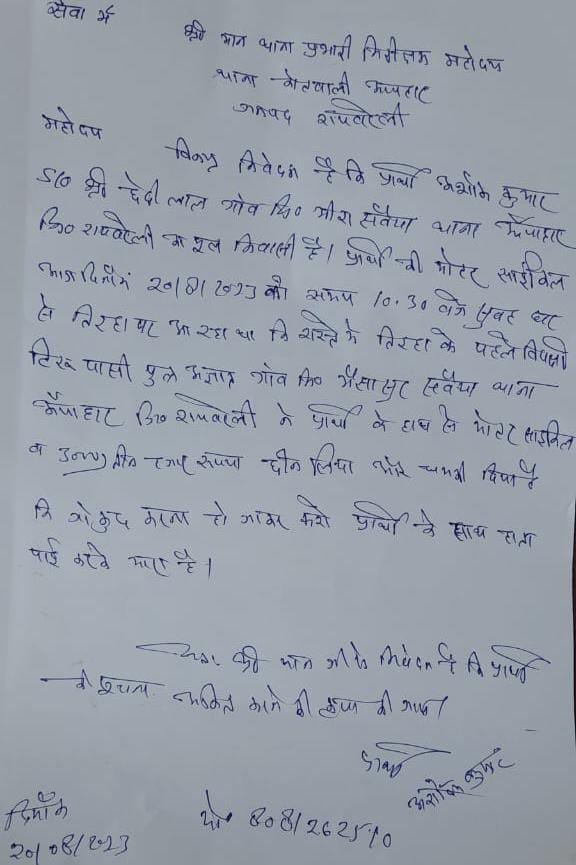 सेवा में
श्री मान थाना प्रभारी निरीक्षक महोदय
थाना कोतवाली ऊंचाहार
जनपद रायबरेली
महोदय
विनम्र निवेदन है कि प्रार्थी अशोक कुमार
S/O श्री छेदी लाल गांव मि0 मीरा सवैया थाना ऊँचाहार
जि0 रायबरेली का मूल निवासी है। प्रार्थी की मोटर साईकिल
आज दिनांक 20/8/2023 को समय 10.30 बजे सुबह घर
से तिराहा पर आ रहा था कि रास्ते में तिराहा के पहले विपक्षी
पासी पुत्र अज्ञात गांव सवैया थाना
ऊँचाहार जि0 रायबरेली ने प्रार्थी के हाथ से मोटर साइकिल
व तीन हजार रूपया छीन लिया और धमकी दिया है
कि जो कुछ करना हो जाकर करो प्रार्थी के साथ हाता
पाई करके मारा है।
अतः श्री मान जी से निवेदन है कि प्रार्थी
की सूचना अंकित करने की कृपा की जाय।
प्रार्थी
अशोक कुमार
दिनाँक
20/08/2023
मो0